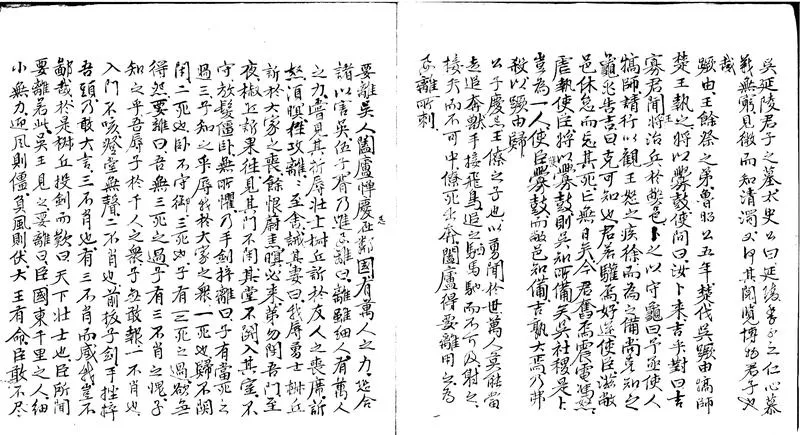 吳延陵君子之墓太史公曰延陵季子之仁心慕
義無窮見微而知清濁又何其閎覧博物君子也
哉
蹶由王餘祭之弟魯昭公五年楚伐吳蹶由犒師
楚王執之將以釁鼓使問曰汝卜來吉乎對曰吉
寡君聞將治兵於敝邑卜之以守龜曰予亟使人
犒師請行以觀王怒之疾徐而為之備尚克知之
龜兆告吉曰克可知也君若驩焉好逆使臣滋敝
邑休怠而忘其死亡無日矣今君奮焉震電馮怒
虐執使臣將以釁鼓則吳知所備矣吳社稷是卜
豈為一人使臣釁鼓而敝邑知備吉孰大焉乃弗
殺以蹶由歸
公子慶忌王僚之子也以勇聞於世萬人莫能當
走追奔獸手接飛鳥追之駟馬馳而不可及射之
接矢而不可中僚死出奔闔廬得要離用之為
要離所刺
要離吳人闔廬憚慶忌在鄰國有萬人之力恐合
諸以害吳伍子胥乃進要離曰離雖細人有萬人
之力嘗見其折辱壯士椒丘訢於友人之喪席訢
怒溷瞑挫攻離離至舍誡其妻曰我辱勇士椒丘
訢於大家之喪餘恨蔚恚瞑必來弟勿閉吾門至
夜椒丘訢果往見其門不閉其堂不關入其室不
守放髮僵臥無所懼乃手劍捽離曰子有當死之
過三子知之乎辱我於大家之衆一死也歸不關
閉二死也臥不守御三死也子有三死之過欲無
得怨要離曰吾無三死之過子有三不肖之愧子
知之乎吾辱子於千人之衆子無敢報一不肖也
入門不咳登堂無聲二不肖也前拔子劍手挫捽
吾頭乃敢大言三不肖也有三不肖而威我豈不
鄙哉於是椒丘投劍而歎曰天下壯士也臣所聞
要離若此吳王見之要離曰臣國東千里之人細
小無力迎風則僵負風則伏大王有命臣敢不盡